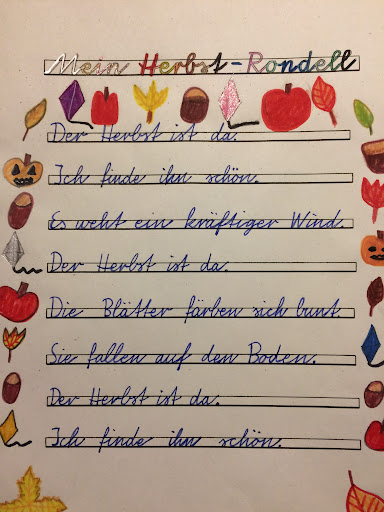 Mein Herbst-Rondell
Der Herbst ist da.
Ich finde ihn schön.
Es weht ein kräftiger Wind.
Der Herbst ist da.
Die Blätter färben sich bunt.
Sie fallen auf den Boden.
Der Herbst ist da.
Ich finde ihn schön.